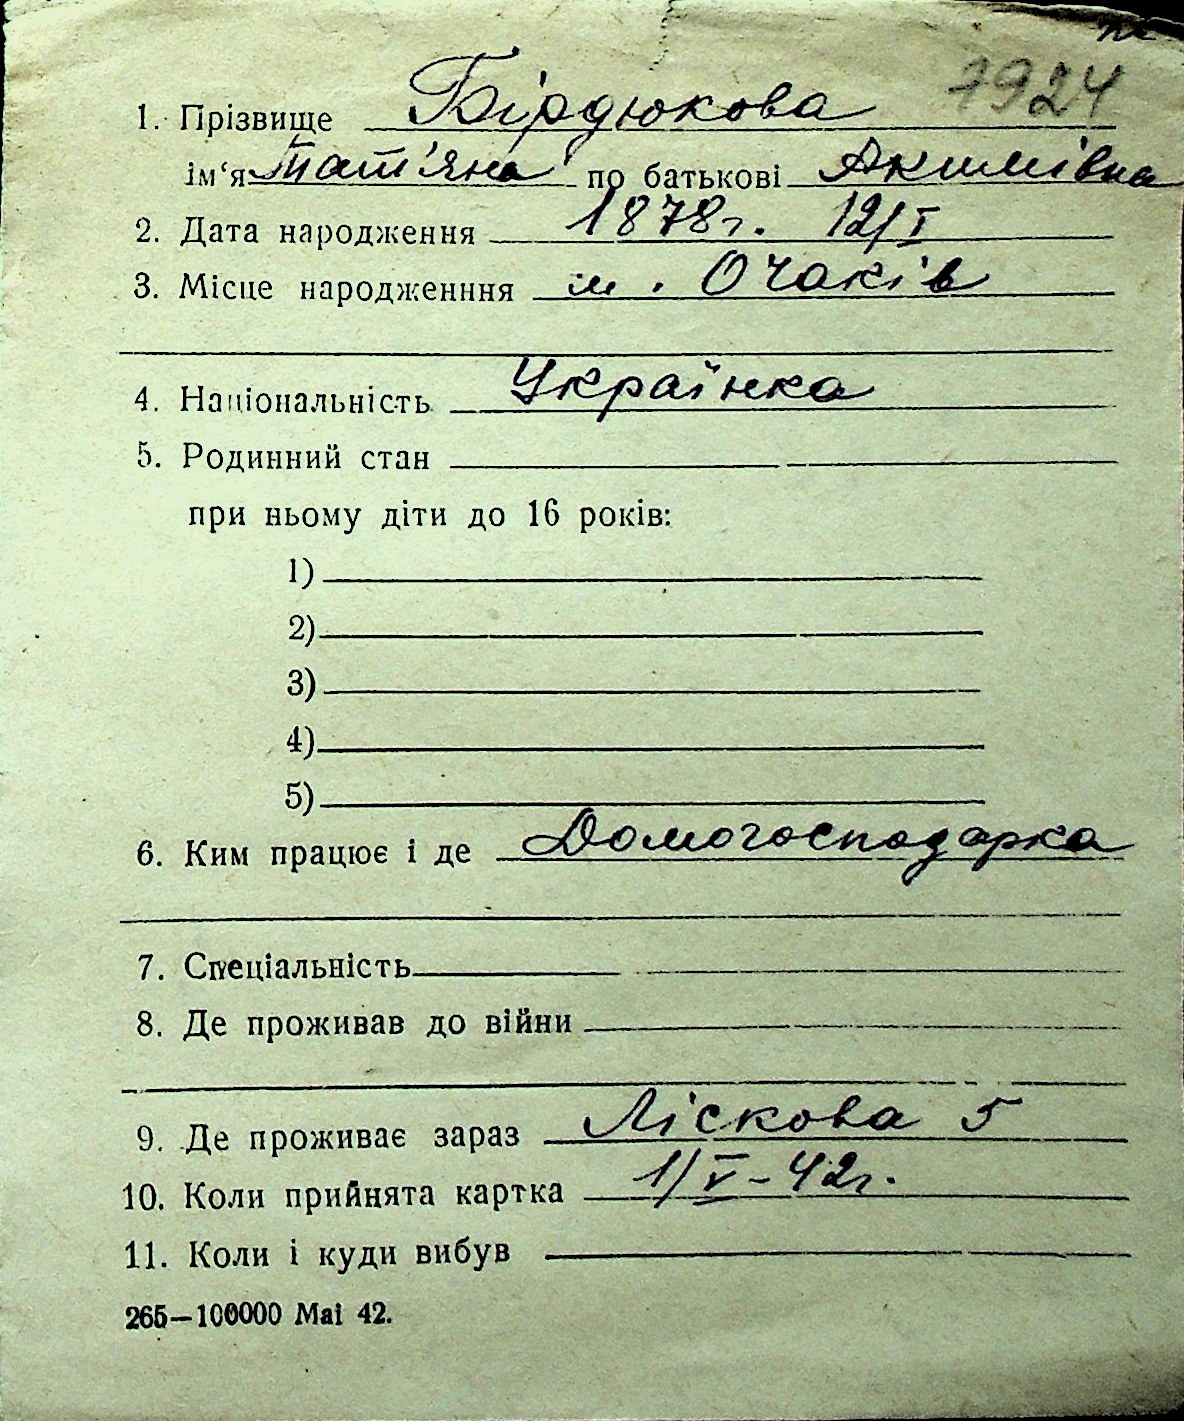 7924
1. Прізвище Бірдюкова
ім‘я Тат'яна по батькові Акимівна
2. Дата народження 1878г. 12/I
3. Місце народженння м. Очаків
4. Національність Українка
5. Родинний стан
при ньому діти до 16 років:
1)
2)
3)
4)
5)
6. Ким працює і де Домогосподарка
7. Спеціальність
8. Де проживав до війни
9. Де проживає зараз Ліскова 5
10. Коли прийнята картка 1/V-42г.
11. Коли і куди вибув
265—100000 Mai 42.